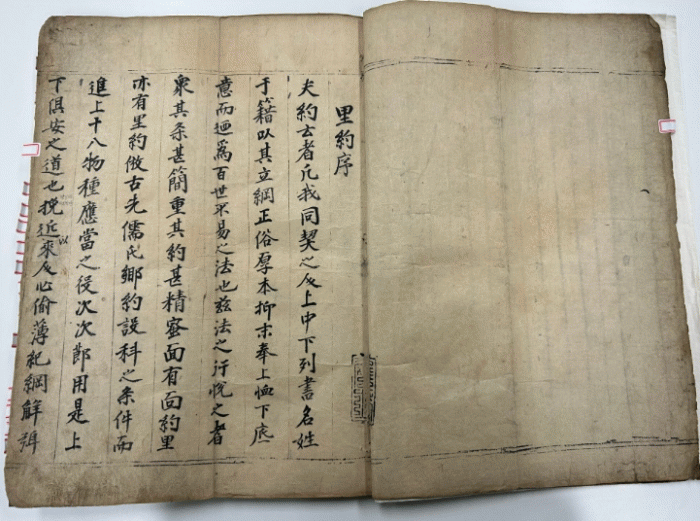 里約序
夫約云者凡我同契之民上中下列書名姓
于籍以其立綱正俗厚本抑末奉上恤下底
意而迺爲百世不易之法也兹法之行悅之者
衆其条甚簡重其約甚精密面有面約里
亦有里約倣古先儒氏鄉約設科之条件而
進上十八物種應當之役次次節用是上
下俱安之道也挽近以來民心偷薄紀綱解弛